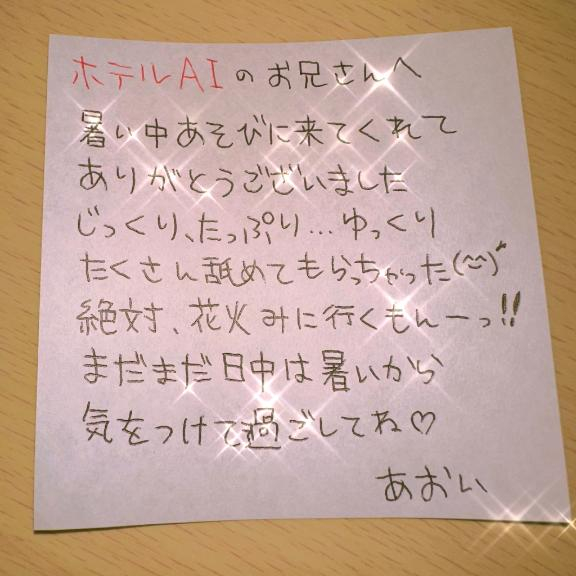 ホテルAIのお兄さんへ
暑い中あそびに来てくれて
ありがとうございました
じっくり、たっぷり…ゆっくり
たくさん舐めてもらっちゃった(^^)
絶対、花火みに行くもんーっ!!
まだまだ日中は暑いから
気をつけて過ごしてね♡
あおい